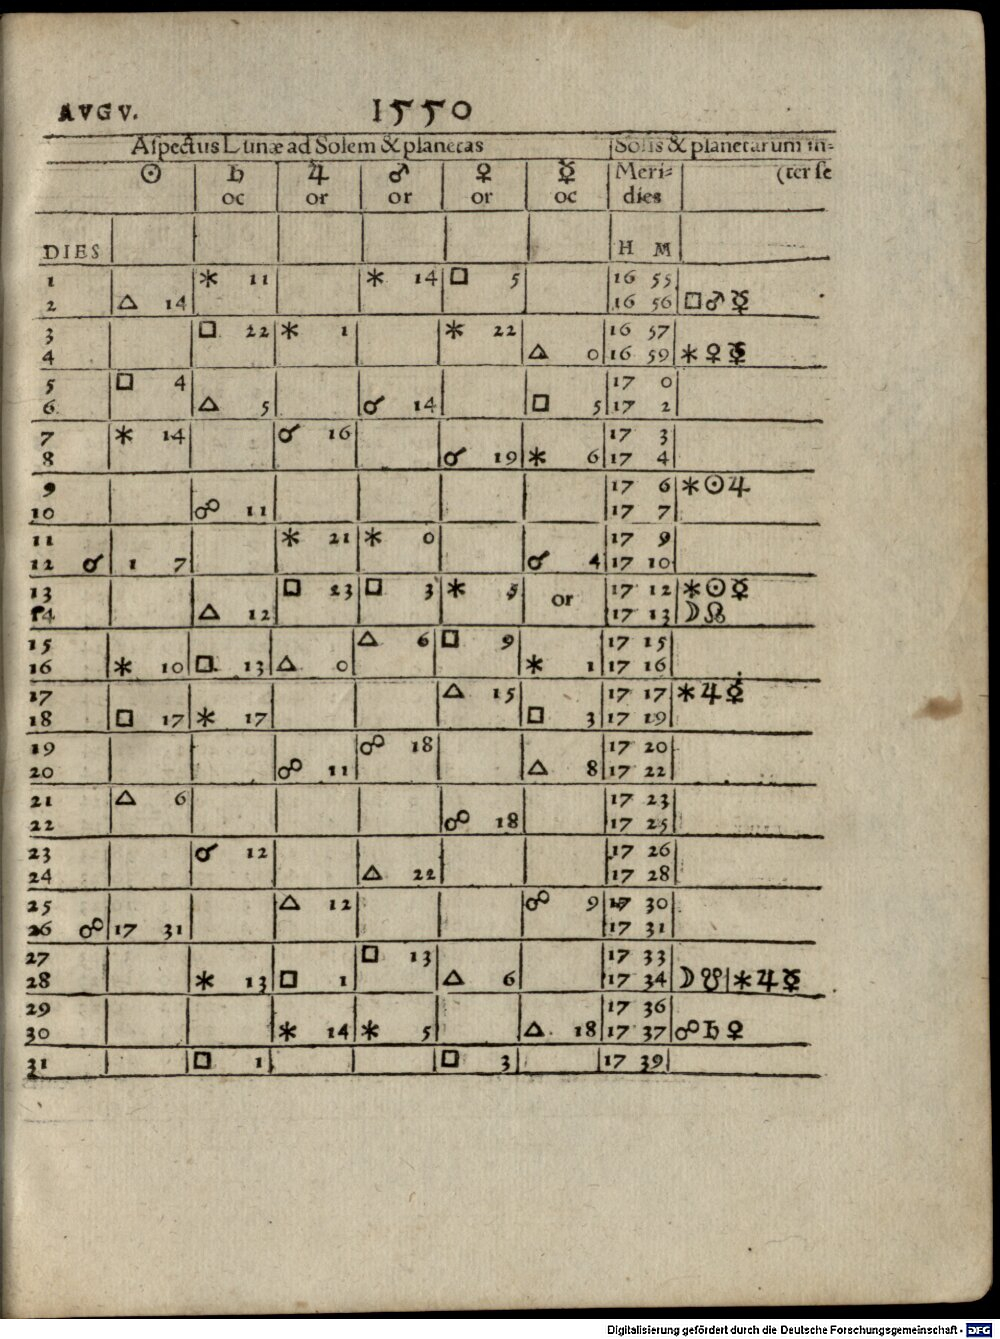 AVGV. 1550
Aſpectus Lunæ ad Solem & planetas Solis & planetarum in-
☉ ♄ ♃ ♂ ♀ ☿ Meri- (ter ſe
oc or or or oc dies
DIES H M
1 ⚹ 11 ⚹ 14 □ 5 16 55
2 △ 14 16 56 □ ♂ ☿
3 □ 22 ⚹ 1 ⚹ 22 16 57
4 △ 0 16 59 ⚹ ♀ ☿
5 □ 4 17 0
6 △ 5 ☌ 14 □ 5 17 2
7 ⚹ 14 ☌ 16 17 3
8 ☌ 19 ⚹ 6 17 4
9 17 6 ⚹ ☉ ♃
10 ☍ 11 17 7
11 ⚹ 21 ⚹ 0 17 9
12 ☌ 1 7 ☌ 4 17 10
13 □ 23 □ 3 ⚹ 5 or 17 12 ⚹ ☉ ☿
14 △ 12 17 13 ☽ ☊
15 △ 6 □ 9 17 15
16 ⚹ 10 □ 13 △ 0 ⚹ 1 17 16
17 △ 15 17 17 ⚹ ♃ ☿
18 □ 17 ⚹ 17 □ 3 17 19
19 ☍ 18 17 20
20 ☍ 11 △ 8 17 22
21 △ 6 17 23
22 ☍ 18 17 25
23 ☌ 12 17 26
24 △ 22 17 28
25 △ 12 ☍ 9 17 30
26 ☍ 17 31 17 31
27 □ 13 17 33
28 ⚹ 13 □ 1 △ 6 17 34 ☽ ☋ | ⚹ ♃ ☿
29 17 36
30 ⚹ 14 ⚹ 5 △ 18 17 37 ☍ ♄ ♀
31 □ 1 □ 3 17 39
Digitalisierung gefördert durch die Deutsche Forschungsgemeinschaft - DFG